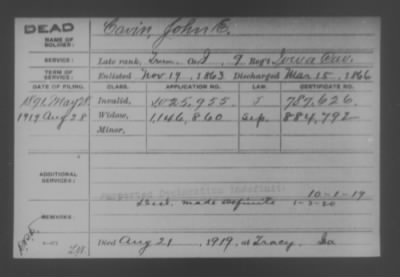 DEAD
NAME OF SOLDIER: Cavin, John E.
SERVICE: Late rank, Co. I, 9 Reg't Iowa Cav.
TERM OF SERVICE: Enlisted Nov 19, 1863. Discharged Mar 15, 1866
DATE OF FILING. CLASS. APPLICATION NO. LAW. CERTIFICATE NO.
1891 May 28. Invalid, 1025,955 J 787.626.
1919 Aug 28 Widow, 1,146,860 884,792
Minor,
ADDITIONAL SERVICES:
Suspected Declaration Indefinite 10-1-19
made definite 1-3-20
REMARKS:
Died Aug 21, 1919, at Tracy, Ia